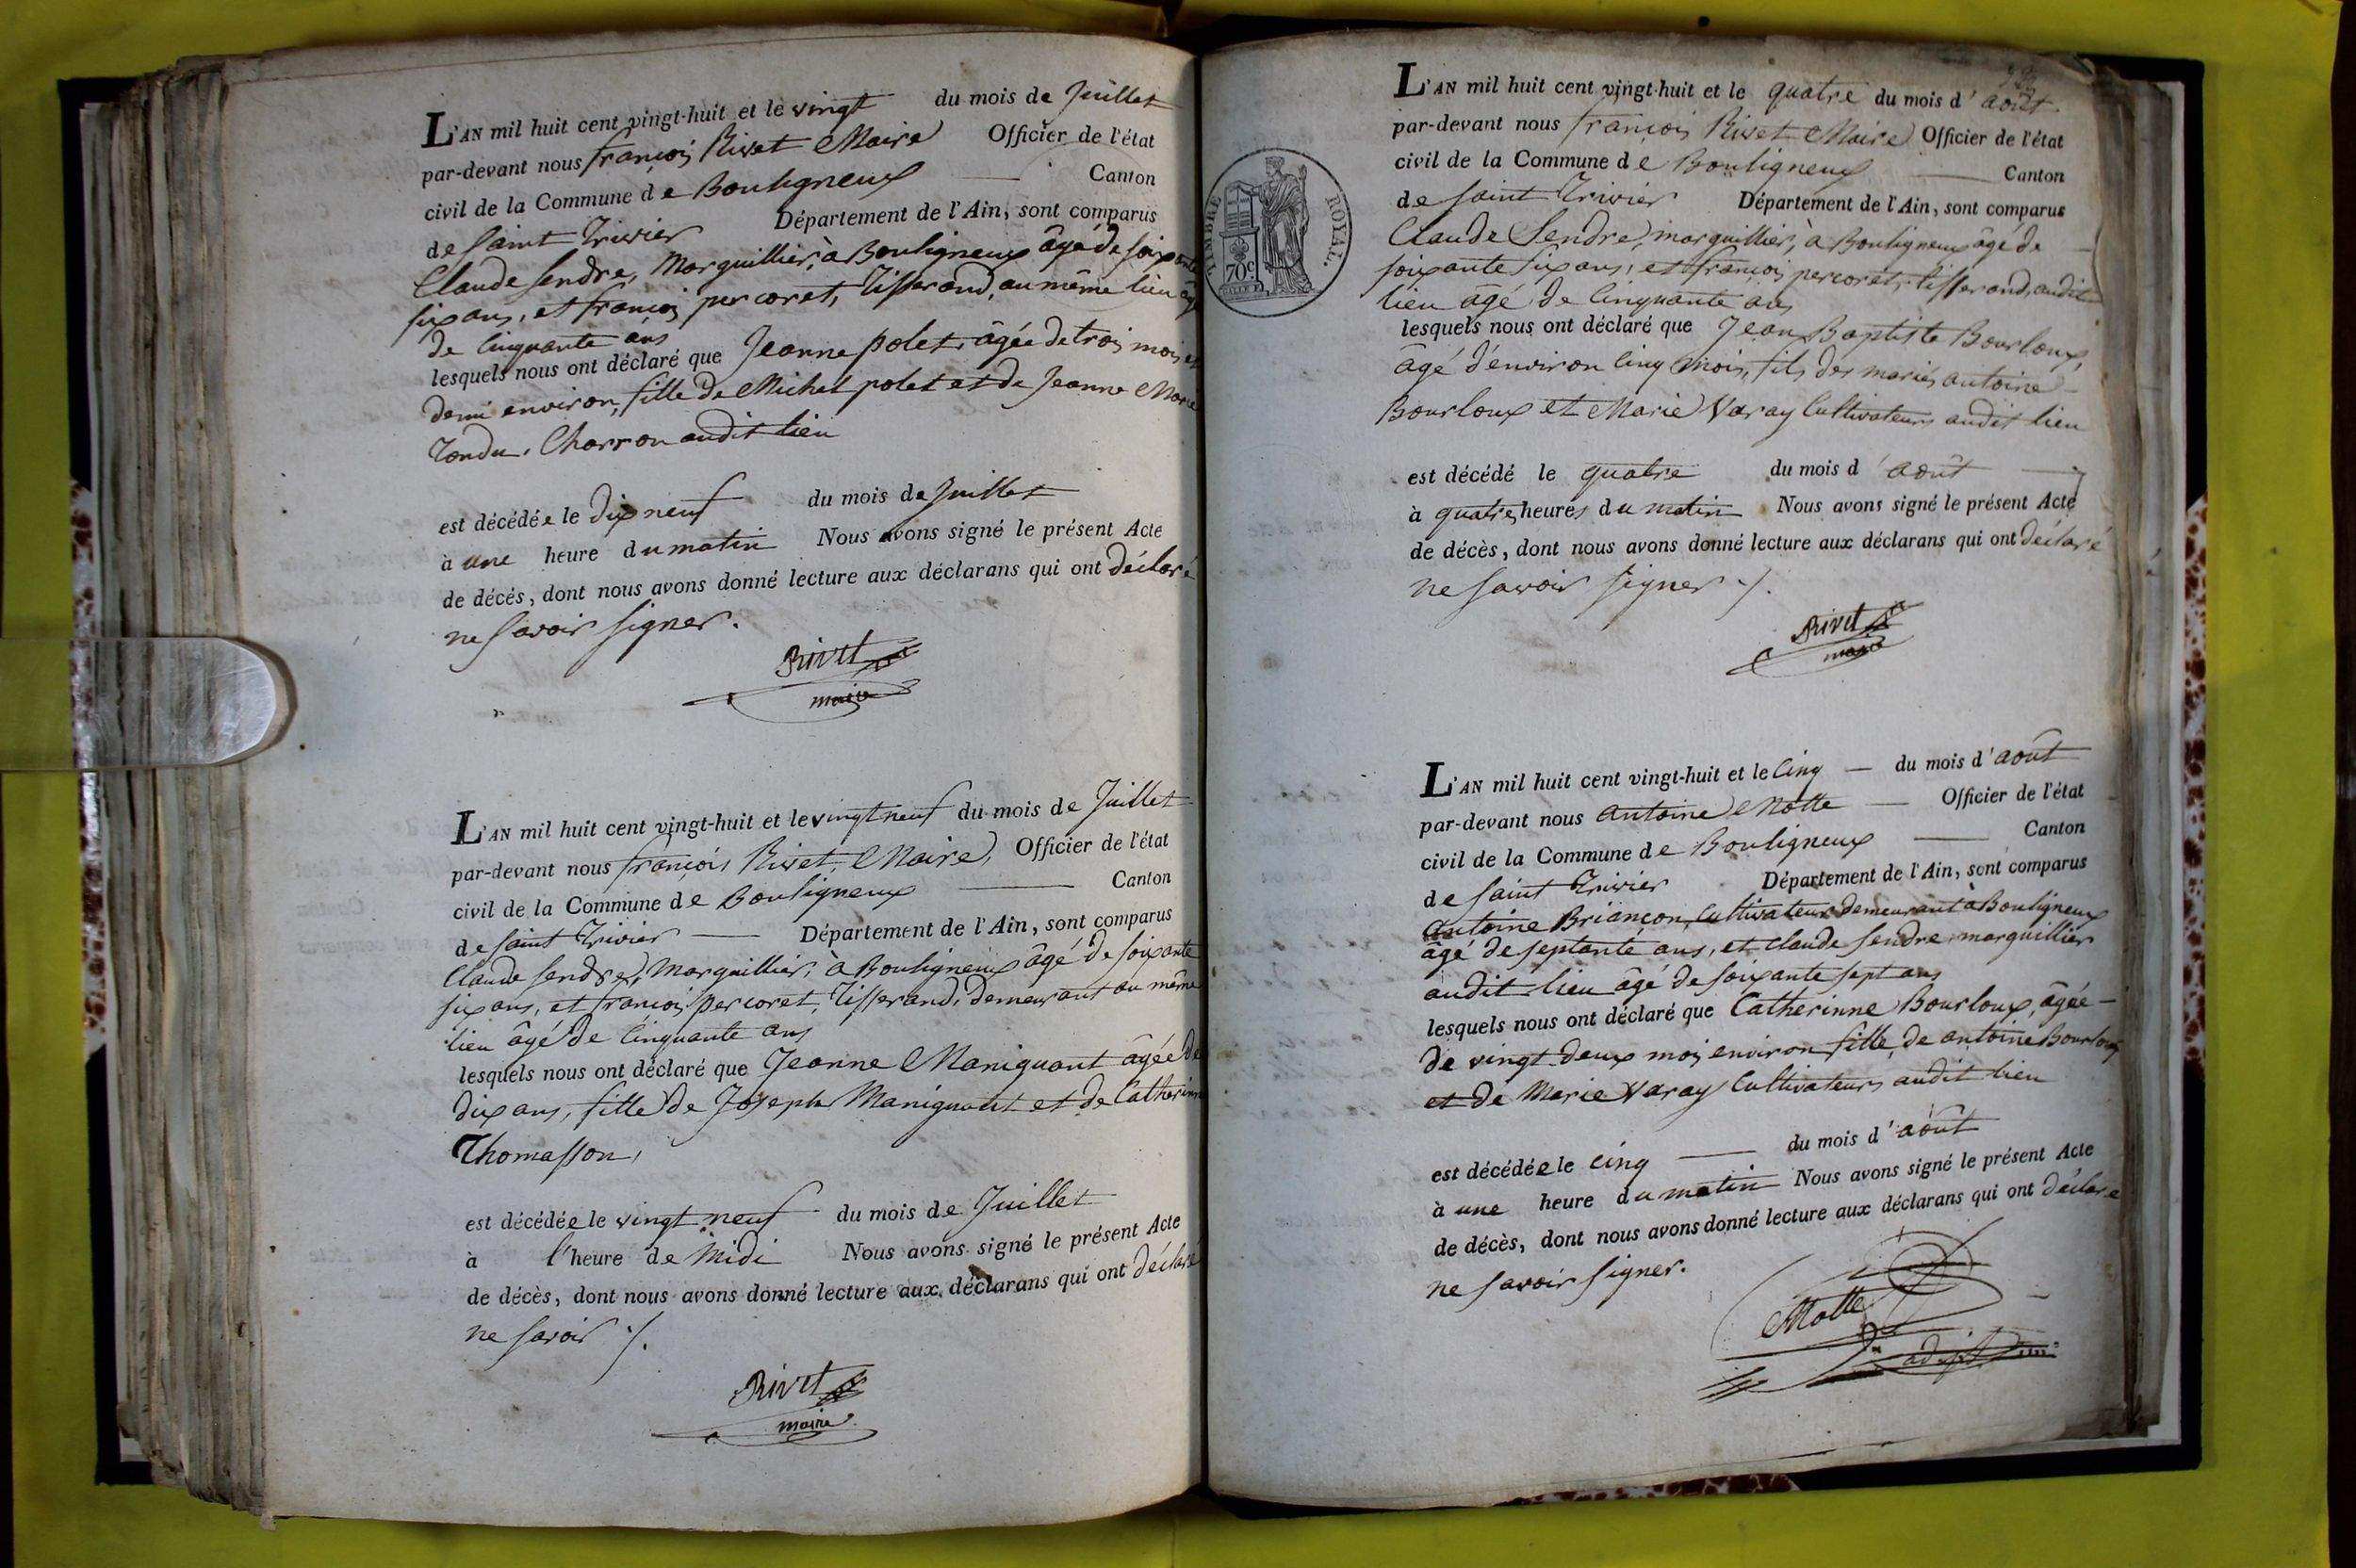 L'AN mil huit cent vingt-huit et le vingt du mois de Juillet
par-devant nous françois Rivet Maire Officier de l'état
civil de la Commune de Bouligneux Canton
de Saint Trivier Département de l'Ain, sont comparus
Claude Sendre, Marguillier, à Bouligneux âgé de soixante
six ans, et françois percoret, Tisserand, au même lieu âgé
de Cinquante ans
lesquels nous ont déclaré que Jeanne polet, âgée de trois mois et
demi environ, fille de Michel polet et de Jeanne Marie
Tondu, Charron audit lieu
est décédée le dix neuf du mois de Juillet
à une heure du matin Nous avons signé le présent Acte
de décés, dont nous avons donné lecture aux déclarans qui ont déclaré
ne Savoir Signer.
Rivet
maire
L'AN mil huit cent vingt-huit et le vingt neuf du mois de Juillet
par-devant nous françois Rivet, Maire, Officier de l'état
civil de la Commune de Bouligneux Canton
de Saint Trivier Département de l'Ain, sont comparus
Claude Sendre, Marguillier, à Bouligneux âgé de soixante
six ans, et françois percoret, Tisserand, demeurant au même
lieu âgé de Cinquante ans
lesquels nous ont déclaré que Jeanne Maniguant âgée de
dix ans, fille de Joseph Maniguant et de Catherinne
Thomasson,
est décédée le vingt neuf du mois de Juillet
à l'heure de Midi Nous avons signé le présent Acte
de décès, dont nous avons donné lecture aux déclarans qui ont déclaré
ne Savoir ./.
Rivet
maire
L'AN mil huit cent vingt-huit et le quatre du mois d'août
par-devant nous françois Rivet Maire Officier de l'état
civil de la Commune de Bouligneux Canton
de Saint Trivier Département de l'Ain, sont comparus
Claude Sendre, marguillier, à Bouligneux âgé de
soixante six ans, et françois percorét, tisserand, audit
lieu âgé de Cinquante ans
lesquels nous ont déclaré que Jean Baptiste Bourloux,
âgé d'environ Cinq Mois, fils des mariés antoine
Bourloux et Marie Varay Cultivateurs audit lieu
est décédé le quatre du mois d'août
à quatre heures du matin Nous avons signé le présent Acte
de décès, dont nous avons donné lecture aux déclarans qui ont déclaré
ne Savoir Signer ./.
Rivet
maire
TIMBRE ROYAL.
70c
L'AN mil huit cent vingt-huit et le Cinq du mois d'août
par-devant nous antoine Motte Officier de l'état
civil de la Commune de Bouligneux Canton
de Saint Trivier Département de l'Ain, sont comparus
antoine Briançon, Cultivateur demeurant à Bouligneux
âgé de septante ans, et Claude Sendre marguillier
audit lieu âgé de soixante sept ans
lesquels nous ont déclaré que Catherinne Bourloux, âgée
de vingt deux mois environ fille, de antoine Bourloux
et de Marie Varay Cultivateurs audit lieu
est décédée le Cinq du mois d'août
à une heure du matin Nous avons signé le présent Acte
de décès, dont nous avons donné lecture aux déclarans qui ont déclaré
ne Savoir Signer.
Motte